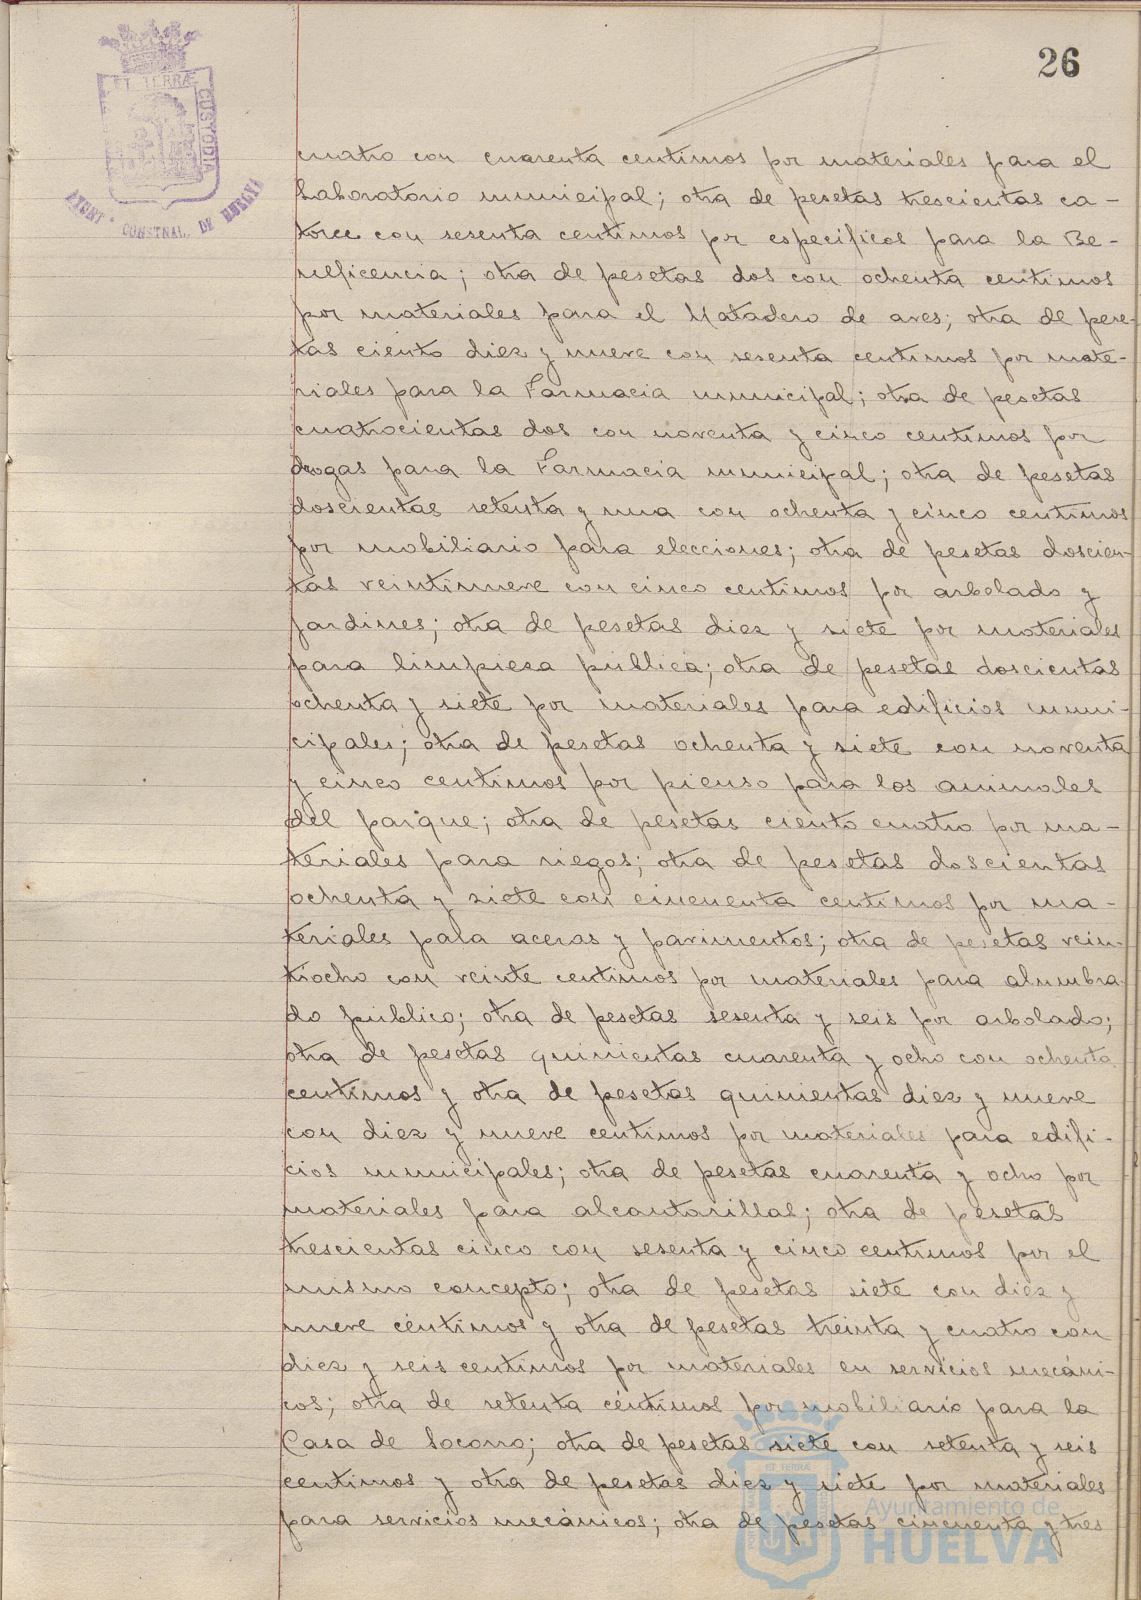 26
ET TERRÆ
CUSTODIA
AYUNT. CONSTNAL. DE HUELVA
cuatro con cuarenta centimos por materiales para el
Laboratorio municipal; otra de pesetas trescientas ca-
torce con sesenta centimos por especificos para la Be-
neficencia; otra de pesetas dos con ochenta centimos
por materiales para el Matadero de aves; otra de pese-
tas ciento diez y nueve con sesenta centimos por mate-
riales para la Farmacia municipal; otra de pesetas
cuatrocientas dos con noventa y cinco centimos por
drogas para la Farmacia municipal; otra de pesetas
doscientas setenta y una con ochenta y cinco centimos
por mobiliario para elecciones; otra de pesetas doscien-
tas veintinueve con cinco centimos por arbolado y
jardines; otra de pesetas diez y siete por materiales
para limpieza pública; otra de pesetas doscientas
ochenta y siete por materiales para edificios muni-
cipales; otra de pesetas ochenta y siete con noventa
y cinco centimos por pienso para los animales
del parque; otra de pesetas ciento cuatro por ma-
teriales para riegos; otra de pesetas doscientas
ochenta y siete con cincuenta centimos por ma-
teriales para aceras y pavimentos; otra de pesetas vein-
tiocho con veinte centimos por materiales para alumbra-
do publico; otra de pesetas sesenta y seis por arbolado;
otra de pesetas quinientas cuarenta y ocho con ochenta
centimos y otra de pesetas quinientas diez y nueve
con diez y nueve centimos por materiales para edifi-
cios municipales; otra de pesetas cuarenta y ocho por
materiales para alcantarillas; otra de pesetas
trescientas cinco con sesenta y cinco centimos por el
mismo concepto; otra de pesetas siete con diez y
nueve céntimos y otra de pesetas treinta y cuatro con
diez y seis centimos por materiales en servicios mecáni-
cos; otra de setenta céntimos por mobiliario para la
Casa de Socorro; otra de pesetas siete con setenta y seis
centimos y otra de pesetas diez y siete por materiales
para servicios mecánicos; otra de pesetas cincuenta y tres
Ayuntamiento de
HUELVA